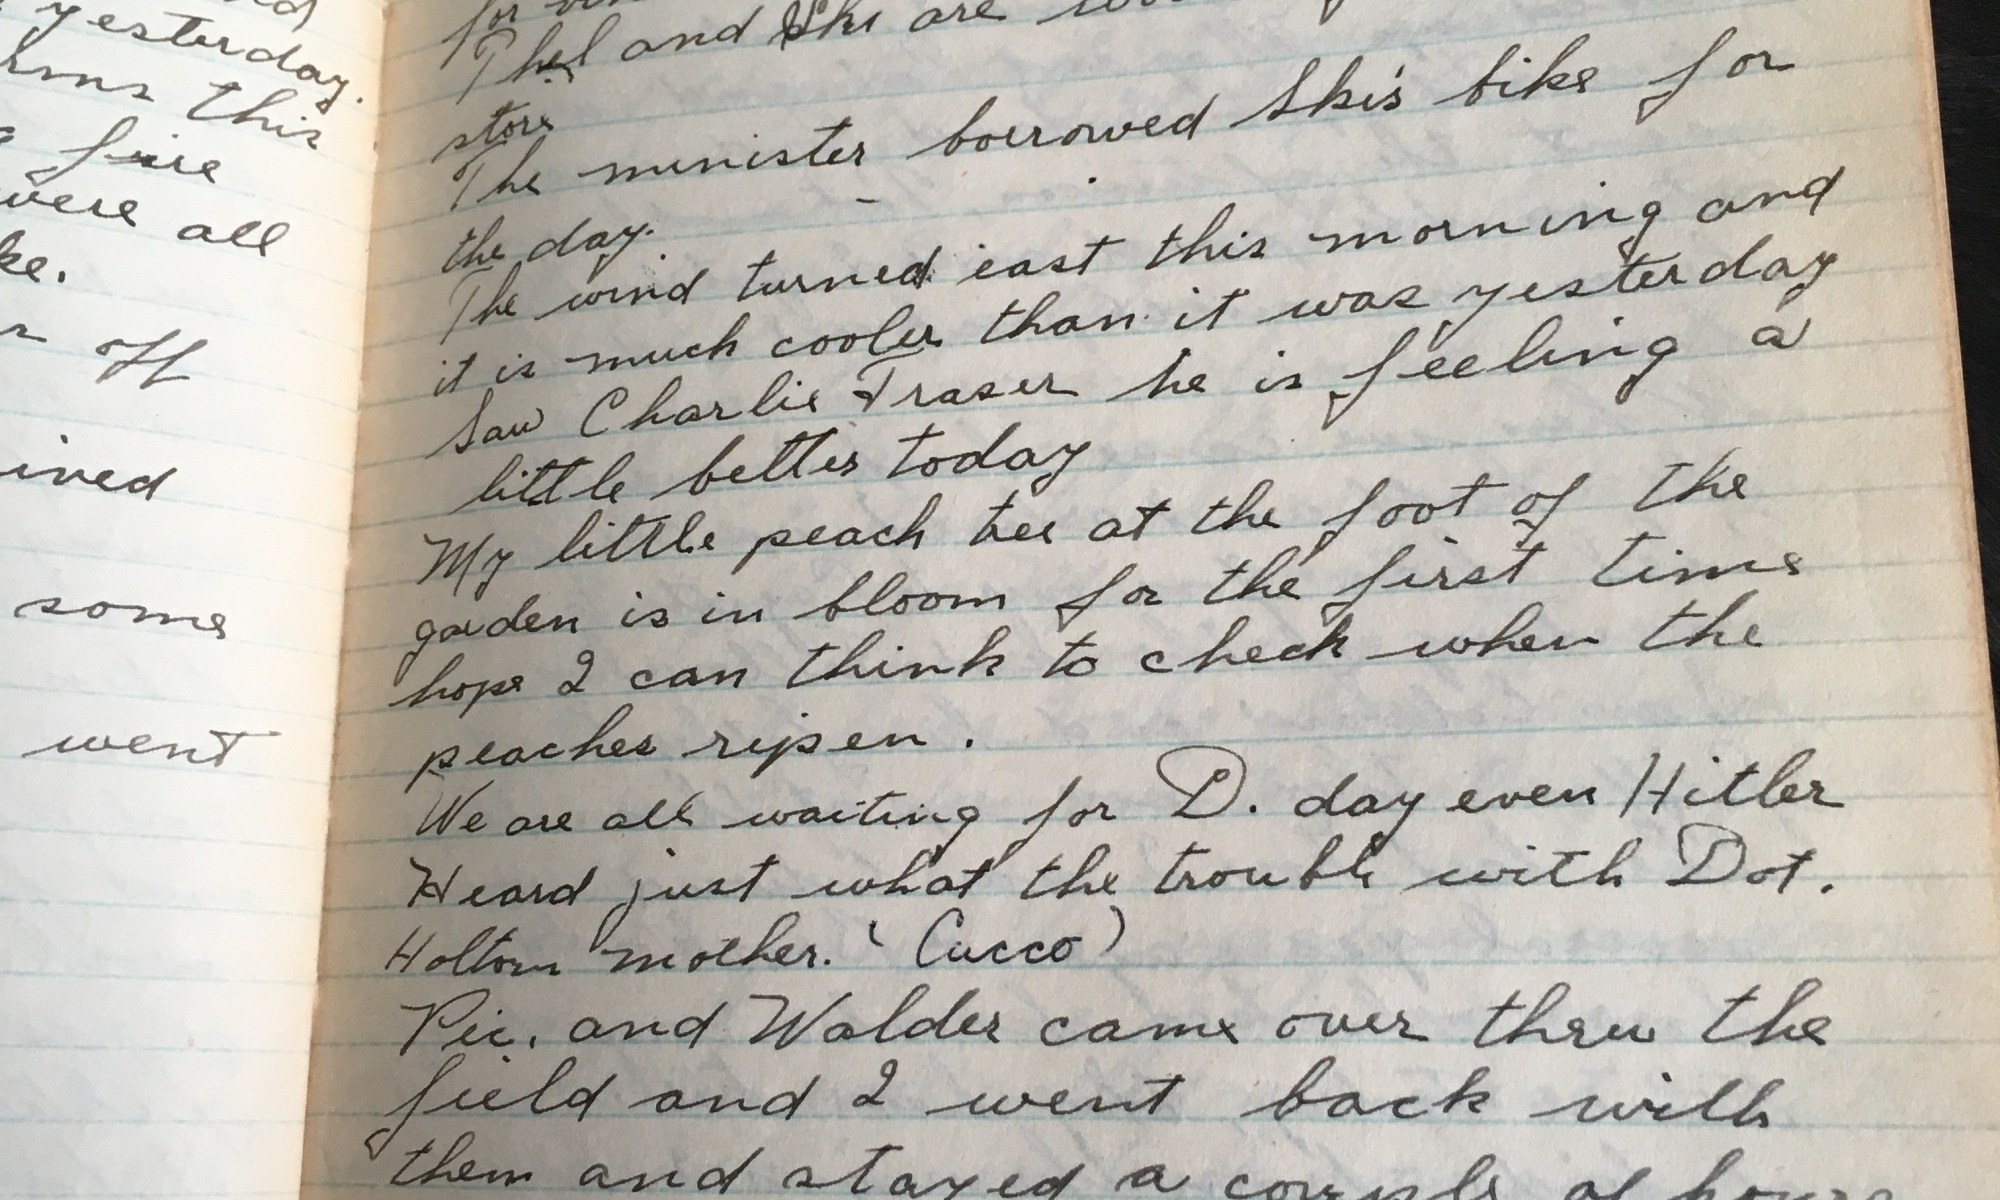 yesterday.
this
fire
were all
ke.
off
ined
some
went
for
Thel and Ski are
store
The minister borrowed Ski's bike for
the day.
The wind turned east this morning and
it is much cooler than it was yesterday
Saw Charlie Fraser he is feeling a
little better today
My little peach tree at the foot of the
garden is in bloom for the first time
hope I can think to check when the
peaches ripen.
We are all waiting for D. day even Hitler
Heard just what the trouble with Dot.
Holtom mother. (Cucco)
Pic. and Walder came over thru the
field and I went back with
them and stayed a couple of hours